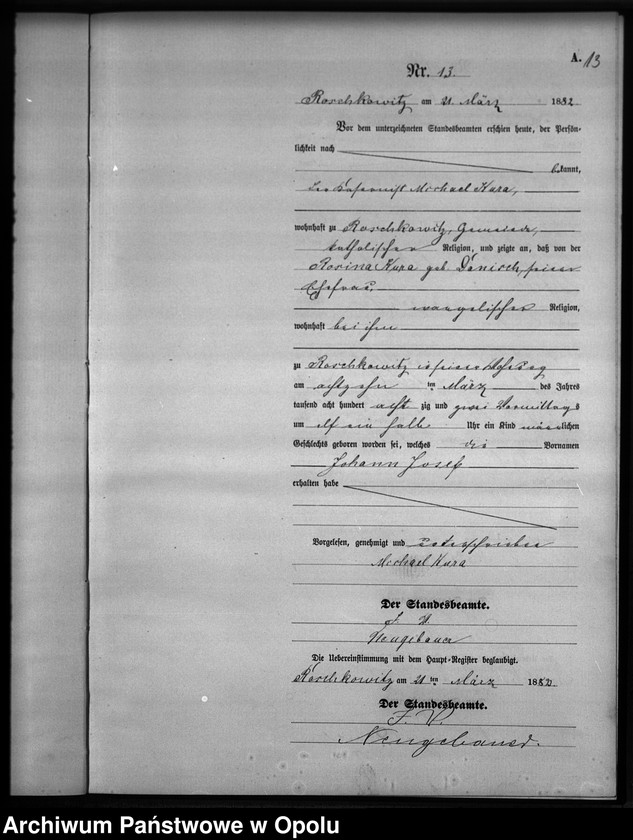 A. 13
Nr. 13.
Roschkowitz am 21 März 1882
Vor dem unterzeichneten Standesbeamten erschien heute, der Persön-
lichkeit nach
bekannt,
Michael Kura,
wohnhaft zu Roschkowitz, Gemeinde,
katholischer Religion, und zeigte an, daß von der
Rosina Kura geb. Danisch, seiner
Ehefrau,
evangelischer Religion,
wohnhaft bei ihm
zu Roschkowitz in seiner Wohnung
am achtzehn ten März des Jahres
tausend acht hundert acht zig und zwei Vormittags
um elf ein halb Uhr ein Kind männlichen
Geschlechts geboren worden sei, welches die Vornamen
Johann Josef
erhalten habe
Vorgelesen, genehmigt und unterschrieben
Michael Kura
Der Standesbeamte.
J. V.
Neugebauer
Die Uebereinstimmung mit dem Haupt-Register beglaubigt.
Roschkowitz am 21 ten März 1882
Der Standesbeamte.
J. V.
Neugebauer.
Archiwum Państwowe w Opolu